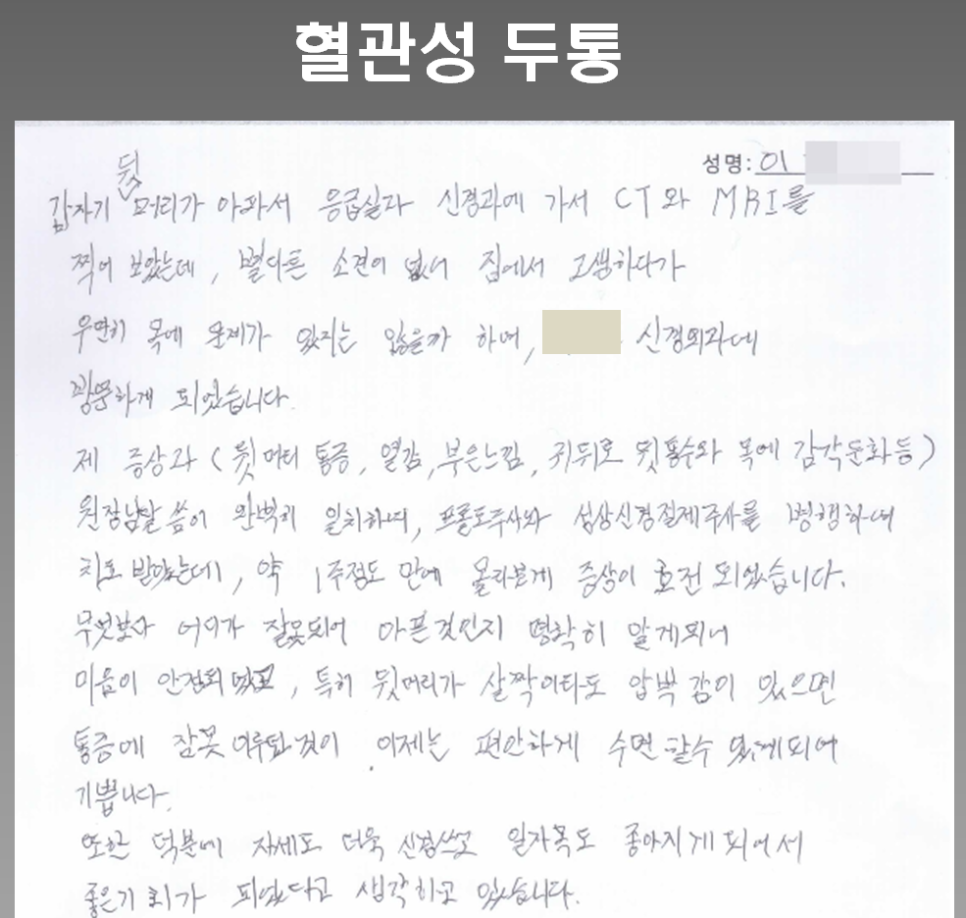 혈관성 두통
성명: 이
뒷
갑자기 머리가 아파서 응급실과 신경과에 가서 CT와 MRI를
찍어 보았는데, 별다른 소견이 없어 집에서 고생하다가
우연히 목에 문제가 있지는 않을까 하며, 신경외과에
방문하게 되었습니다.
제 증상과 (뒷머리 통증, 열감, 부은느낌, 귀뒤로 뒷통수와 목에 감각둔화등)
원장님말씀이 완벽히 일치하며, 프롤로주사와 성상신경절제주사를 병행하여
치료 받았는데, 약 1주정도 만에 몰라보게 증상이 호전 되었습니다.
무엇보다 어디가 잘못되어 아픈것인지 명확히 알게되니
마음이 안정되었고, 특히 뒷머리가 살짝이라도 압박감이 있으면
통증에 잠못 이루던것이 이제는 편안하게 수면 할수 있게되어
기쁩니다.
또한 덕분에 자세도 더욱 신경쓰고 일자목도 좋아지게 되어서
좋은기회가 되었다고 생각하고 있습니다.